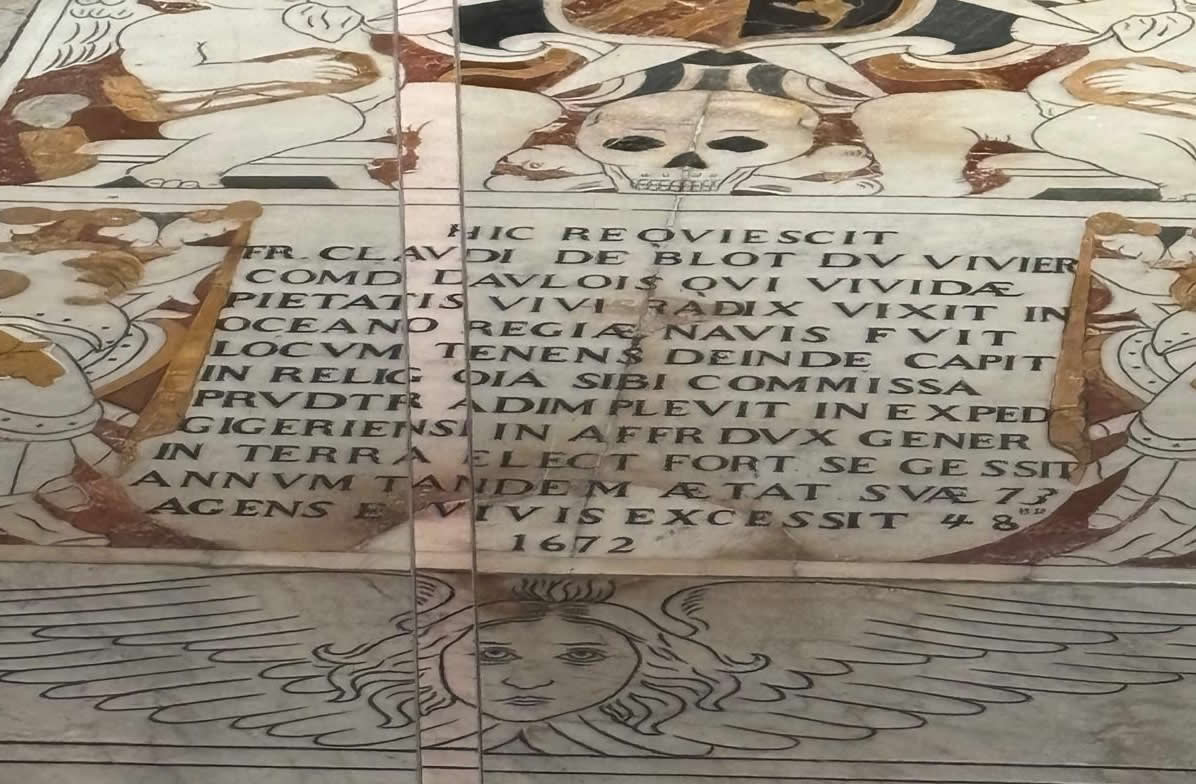 HIC REQVIESCIT
FR. CLAVDI DE BLOT DV VIVIER
COMD DAVLOIS QVI VIVIDÆ
PIETATIS VIVI RADIX VIXIT IN
OCEANO REGIÆ NAVIS FVIT
LOCVM TENENS DEINDE CAPIT
IN RELIG OIA SIBI COMMISSA
PRVDTR ADIMPLEVIT IN EXPED
GIGERIENSI IN AFFR DVX GENER
IN TERRA ELECT FORT SE GESSIT
ANNVM TANDEM ÆTAT SVÆ 73
AGENS E VIVIS EXCESSIT 4 8
1672